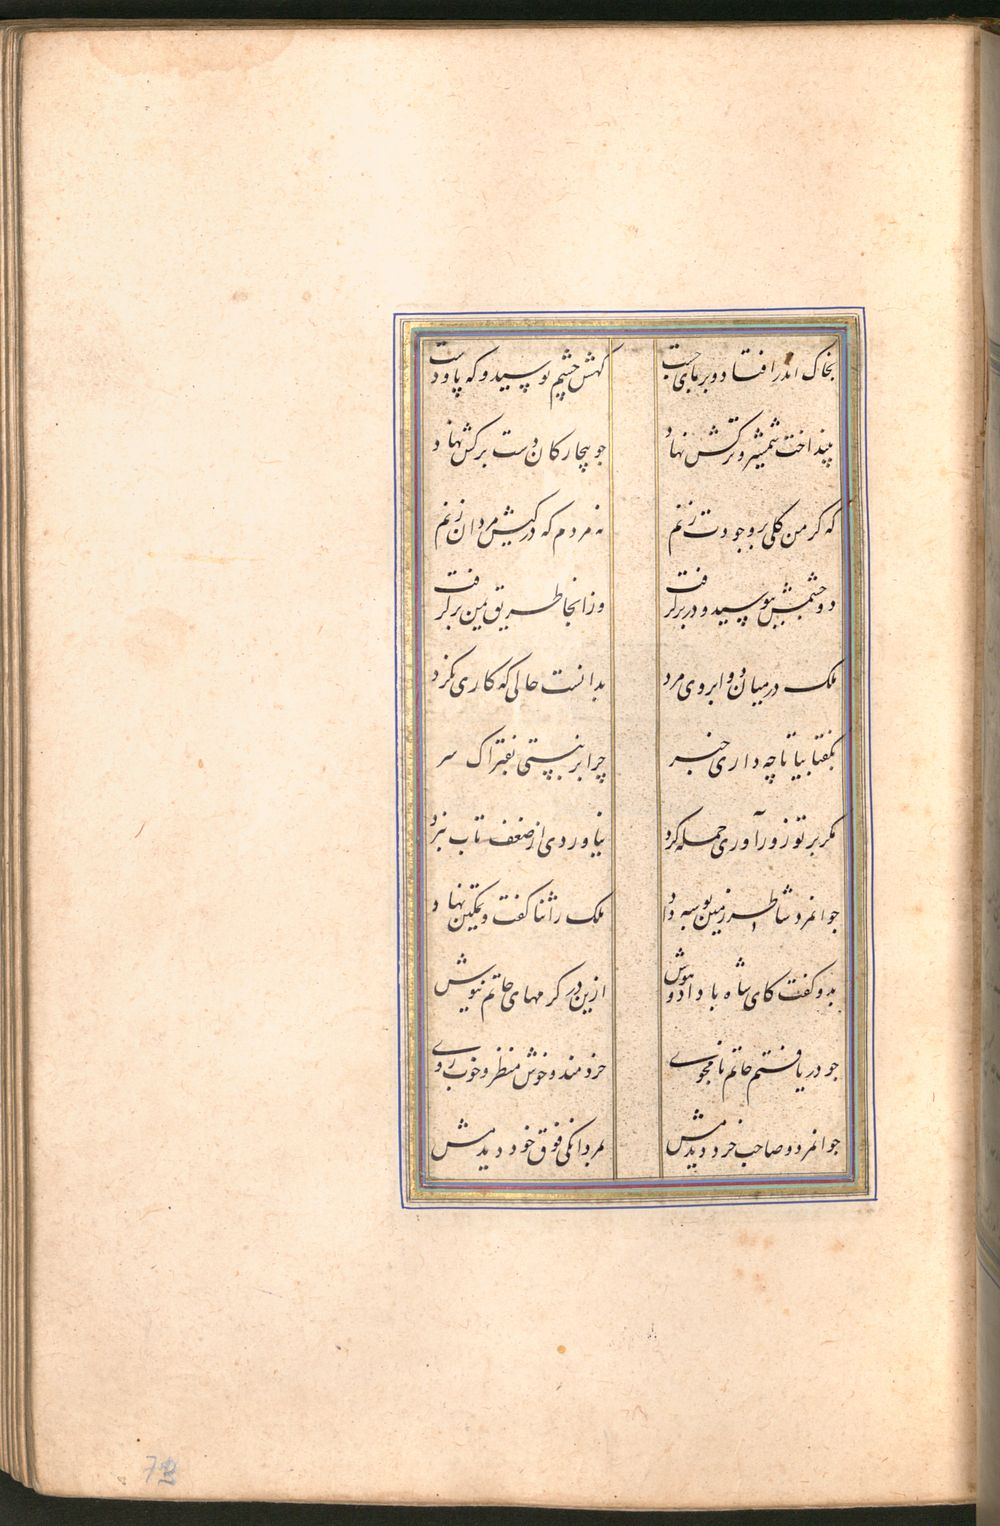 بخاک اندر افتاد و بر پای جست کهش چشم بوسید و که پا و دست
بینداخت شمشیر و ترکش نهاد جو بیچارکان دست برکش نهاد
که کر من کلی بر وجودت زنم نه مردم که در کیش مردان زنم
دو چشمش ببوسید و در بر کرفت وز انجا طریق یمن بر کرفت
ملک در میان دو ابروی مرد بدانست حالی که کاری نکرد
بکفتا بیا تا چه داری خبر چرا بر نبستی بفتراک سر
مکر بر تو زورآوری حمله کرد نیاوردی از ضعف تاب نبرد
جوانمرد شاطر زمین بوسه داد ملک را ثنا کفت و تمکین نهاد
بدو کفت کای شاه با داد و هوش ازین در کرمهای حاتم نیوش
جو دریافتم حاتم نامجوی خردمند و خوش منظر و خوب روی
جوانمرد و صاحب خرد دیدمش بمردانکی فوق خود دیدمش